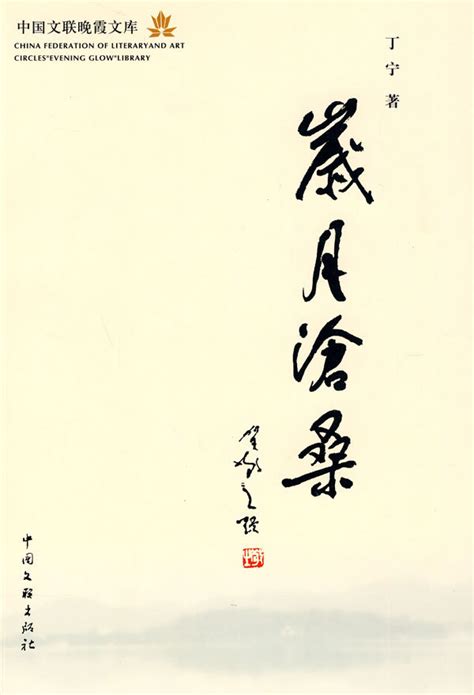 中国文联晚霞文库
CHINA FEDERATION OF LITERARYAND ART
CIRCLES"EVENING GLOW"LIBRARY
丁宁 著
歲月滄桑
贺敬之题
中国文联出版社